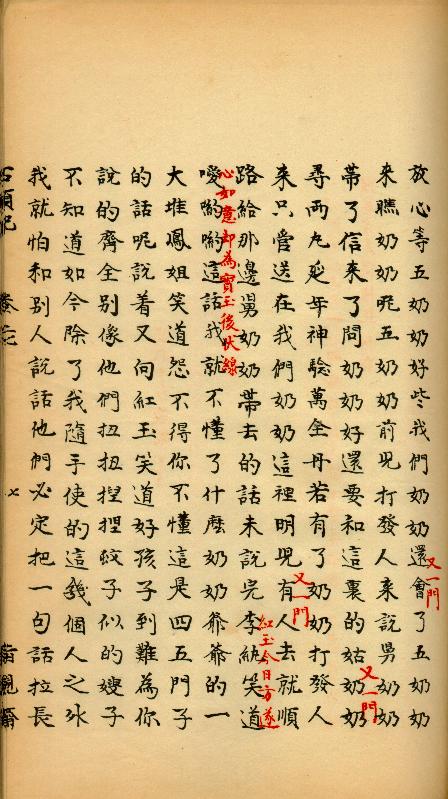 放心等五奶奶好些我們奶奶還會了五奶奶
又一門
來瞧奶奶呢五奶奶前兒打發人來說舅奶奶
帶了信來了問奶奶好還要和這裏的姑奶奶
又一門
尋兩丸延年神驗萬全丹若有了奶奶打發人
來只管送在我們奶奶這裡明兒有人去就順
又一門
路給那邊舅奶奶帶去的話未說完李紈笑道
紅玉今日方遂
心如意却為寶玉後伏線
噯喲喲這話我就不懂了什麼奶奶爺爺的一
大堆鳳姐笑道怨不得你不懂這是四五門子
的話呢說着又向紅玉笑道好孩子到難為你
說的齊全別像他們扭扭捏捏蚊子似的嫂子
不知道如今除了我隨手使的這幾個人之外
我就怕和別人說話他們必定把一句話拉長
石頭記
卷
七